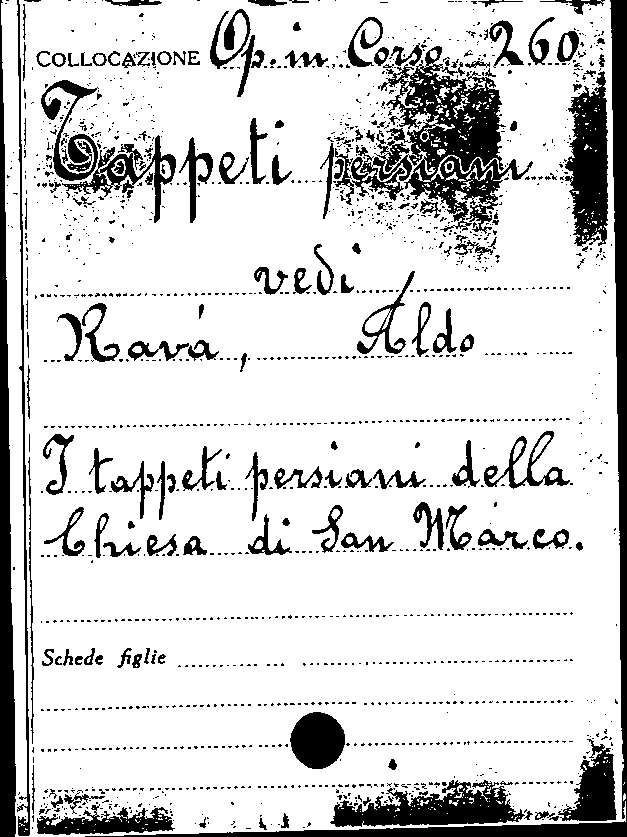 COLLOCAZIONE Op. in Corso 260
Tappeti persiani
vedi
Ravá, Aldo
I tappeti persiani della
Chiesa di San Marco.
Schede figlie